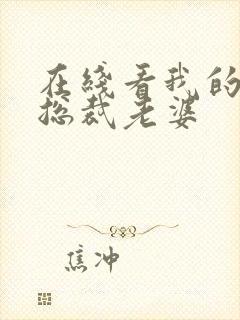 在线看我的
总裁老婆
焦冲